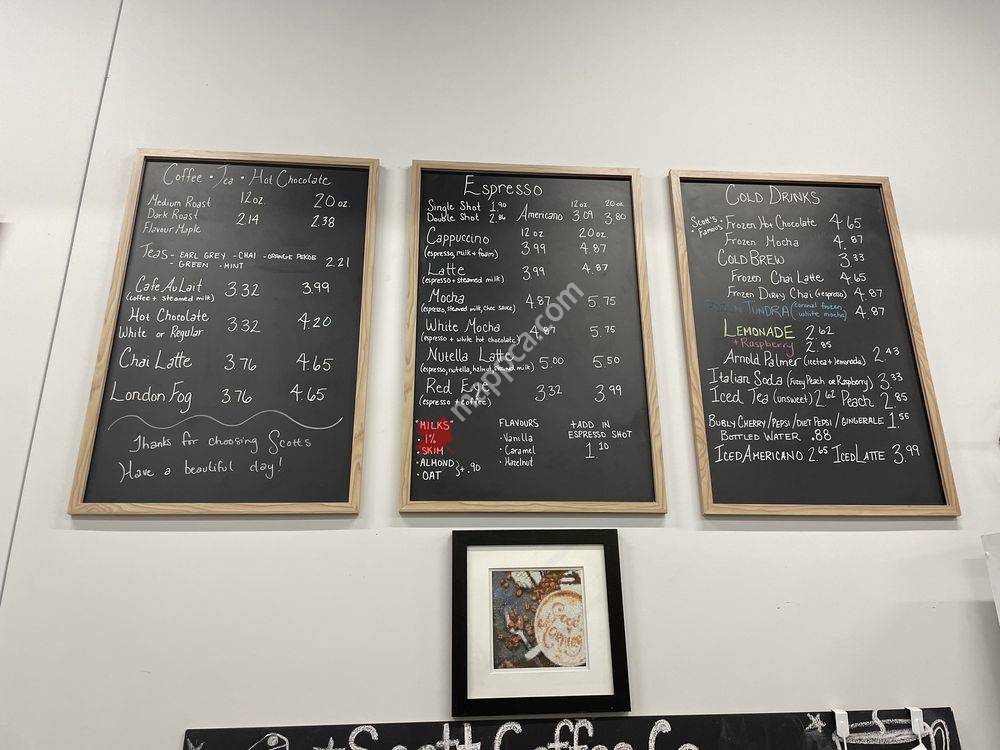 Coffee • Tea • Hot Chocolate
12oz. 20oz.
Medium Roast
Dark Roast 2.14 2.38
Flavour Maple
Teas - EARL GREY - CHAI - ORANGE PEKOE 2.21
- GREEN - MINT
Cafe Au Lait 3.32 3.99
(coffee + steamed milk)
Hot Chocolate 3.32 4.20
White or Regular
Chai Latte 3.76 4.65
London Fog 3.76 4.65
Thanks for choosing Scotts
Have a beautiful day!
Espresso
Single Shot 1.90 12oz. 20oz.
Double Shot 2.86 Americano 3.09 3.80
12oz 20oz.
Cappuccino 3.99 4.87
(espresso, milk + foam)
Latte 3.99 4.87
(espresso + steamed milk)
Mocha 4.87 5.75
(espresso, steamed milk, choc sauce)
White Mocha 4.87 5.75
(espresso + white hot chocolate)
Nutella Latte 5.00 5.50
(espresso, nutella, helnut, steamed milk)
Red Eye 3.32 3.99
(espresso + coffee)
"MILKS"
• 1%
• SKIM
• ALMOND }+ .90
• OAT
FLAVOURS
• Vanilla
• Caramel
• Hazelnut
+ADD IN
ESPRESSO SHOT
1.10
COLD DRINKS
Scott's Famous • Frozen Hot Chocolate 4.65
Frozen Mocha 4.87
COLD BREW 3.33
Frozen Chai Latte 4.65
Frozen Dirty Chai (+espresso) 4.87
FROZEN TUNDRA (caramel frozen, white mocha) 4.87
LEMONADE 2.62
+Raspberry 2.85
Arnold Palmer (icetea + lemonade) 2.43
Italian Soda (Fuzzy Peach or Raspberry) 3.33
Iced Tea (unsweet) 2.62 Peach 2.85
BUBLY CHERRY/PEPSI/DIET PEPSI/GINGERALE 1.55
BOTTLED WATER .88
ICED AMERICANO 2.65 ICED LATTE 3.99
mappca.com
Scott Coffee Co